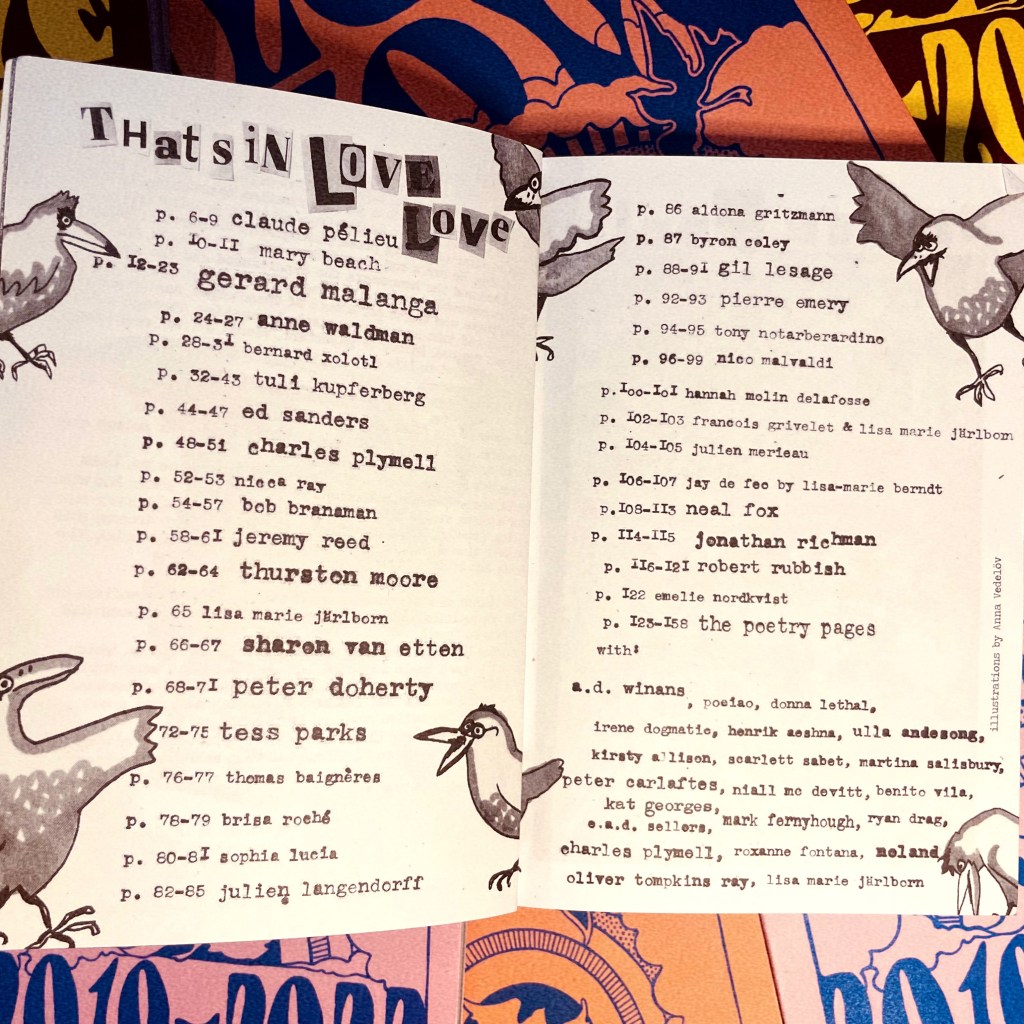 THatsiN LOVE
LOVe
p. 6-9 claude pélieu
p. 10-11 mary beach
p. 12-23 gerard malanga
p. 24-27 anne waldman
p. 28-31 bernard xolotl
p. 32-43 tuli kupferberg
p. 44-47 ed sanders
p. 48-51 charles plymell
p. 52-53 nicca ray
p. 54-57 bob branaman
p. 58-61 jeremy reed
p. 62-64 thurston moore
p. 65 lisa marie järlborn
p. 66-67 sharon van etten
p. 68-71 peter doherty
72-75 tess parks
p. 76-77 thomas baignères
p. 78-79 brisa roché
p. 80-81 sophia lucia
p. 82-85 julien langendorff
p. 86 aldona gritzmann
p. 87 byron coley
p. 88-91 gil lesage
p. 92-93 pierre emery
p. 94-95 tony notarberardino
p. 96-99 nico malvaldi
p.100-101 hannah molin delafosse
p. 102-103 francois grivelet & lisa marie järlborn
p. 104-105 julien merieau
p. 106-107 jay de feo by lisa-marie berndt
p.108-113 neal fox
p. 114-115 jonathan richman
p. 116-121 robert rubbish
p. 122 emelie nordkvist
p. 123-158 the poetry pages
with:
a.d. winans, poeiao, donna lethal,
irene dogmatic, henrik aeshna, ulla andesong,
kirsty allison, scarlett sabet, martina salisbury,
peter carlaftes, niall mc devitt, benito vila,
kat georges,
e.a.d. sellers, mark fernyhough, ryan drag,
charles plymell, roxanne fontana, noland,
oliver tompkins ray, lisa marie järlborn
illustrations by Anna Vedelöv
2019-2022
2019